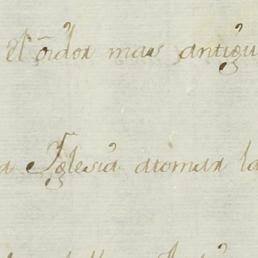 el oidor mas antigu
a Iglesia atomar la